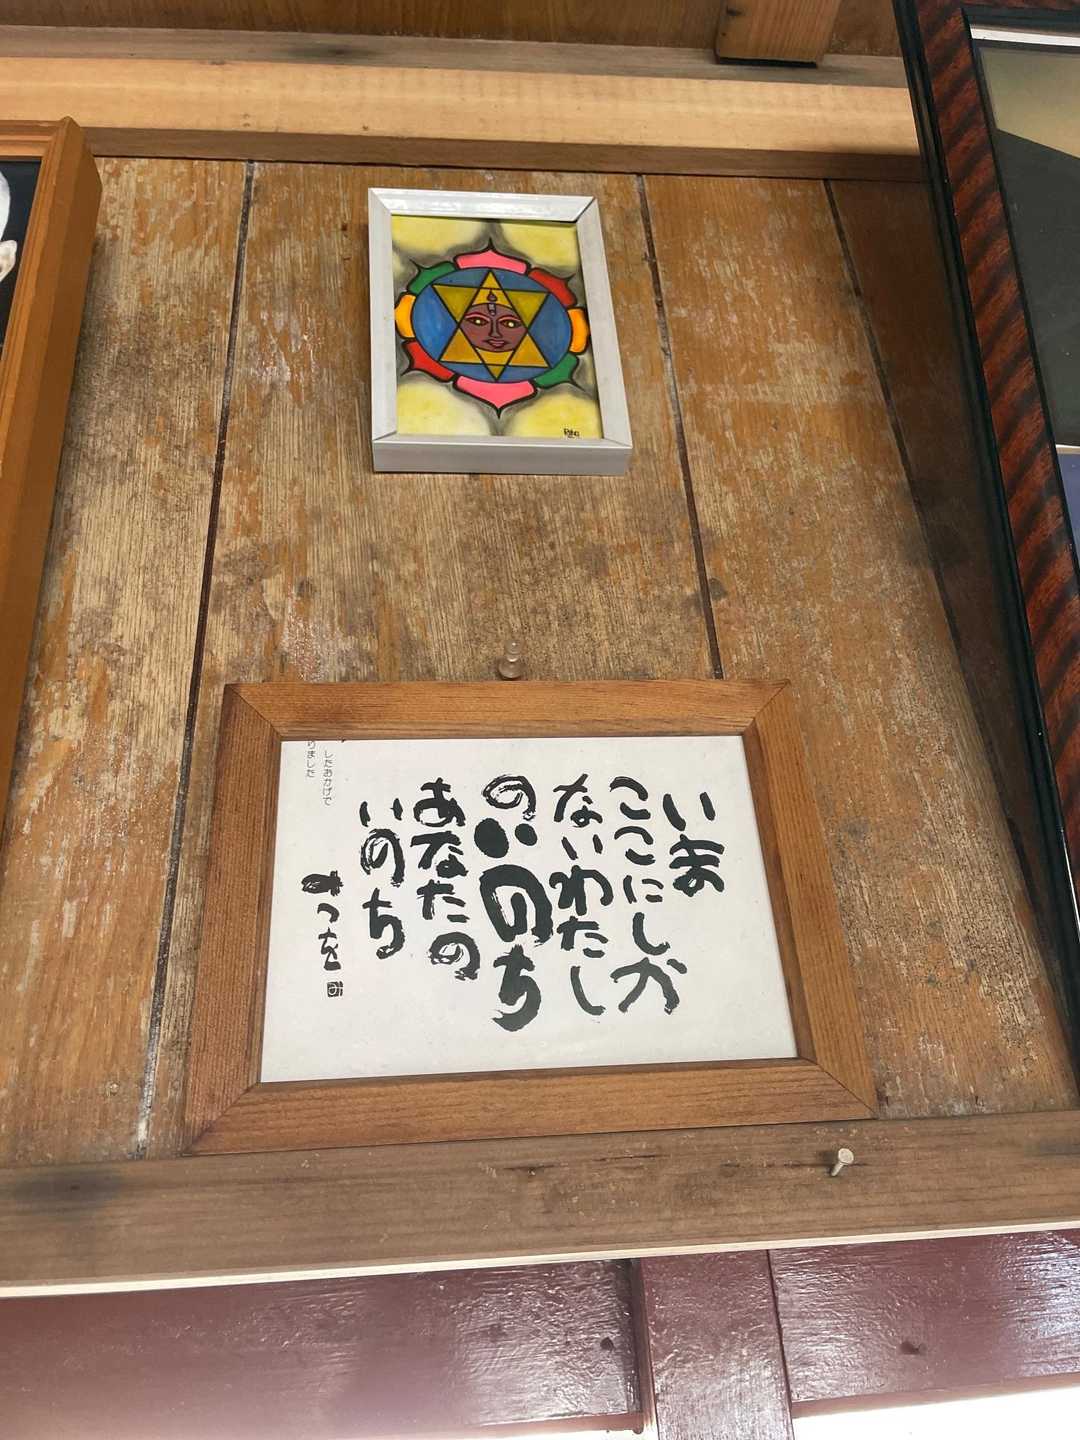 いま
ここにしか
ないわたし
のいのち
あなたの
いのち
みつを
したおかげで
りました